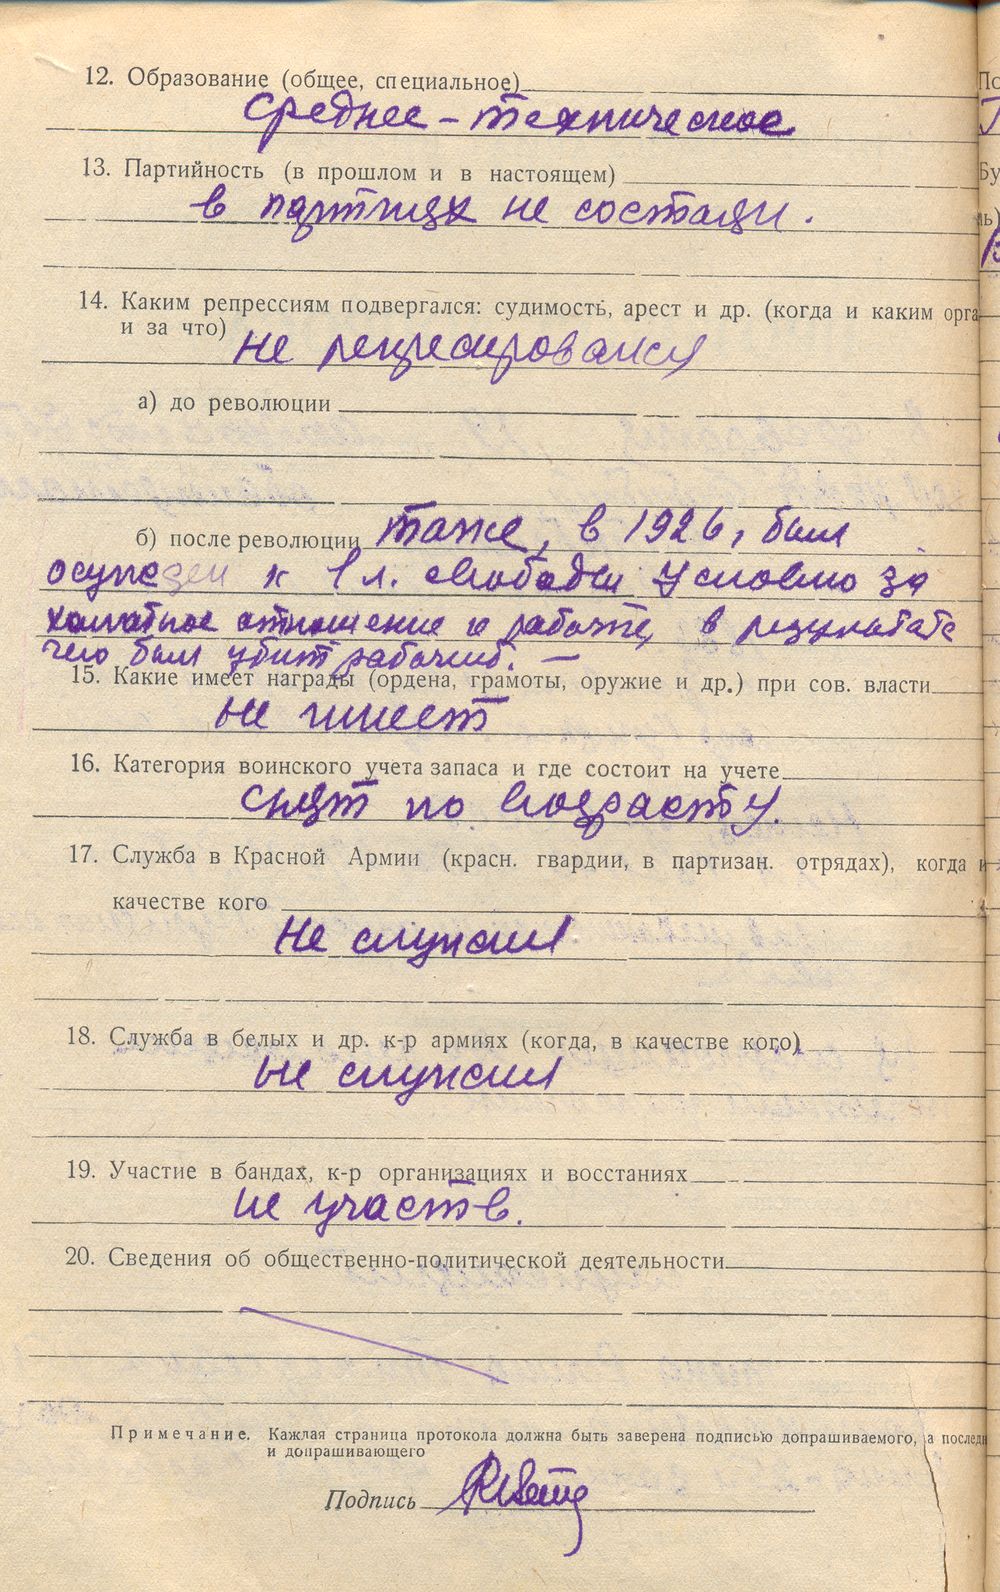 12. Образование (общее, специальное)
Среднее – техническое
13. Партийность (в прошлом и в настоящем)
в партиях не состоял.
14. Каким репрессиям подвергался: судимость, арест и др. (когда и каким орга
и за что)
не репресирован
а) до революции
б) после революции тоже, в 1926, был
осужден к 1 л. свободы условно за
халатное отношение к работе, в результате
чего был убит рабочий. —
15. Какие имеет награды (ордена, грамоты, оружие и др.) при сов. власти
не имеет
16. Категория воинского учета запаса и где состоит на учете
снят по возрасту.
17. Служба в Красной Армии (красн. гвардии, в партизан. отрядах), когда и
качестве кого
не служил
18. Служба в белых и др. к-р армиях (когда, в качестве кого)
не служил
19. Участие в бандах, к-р организациях и восстаниях
не участв.
20. Сведения об общественно-политической деятельности
Примечание. Каждая страница протокола должна быть заверена подписью допрашиваемого, а последн
и допрашивающего
Подпись